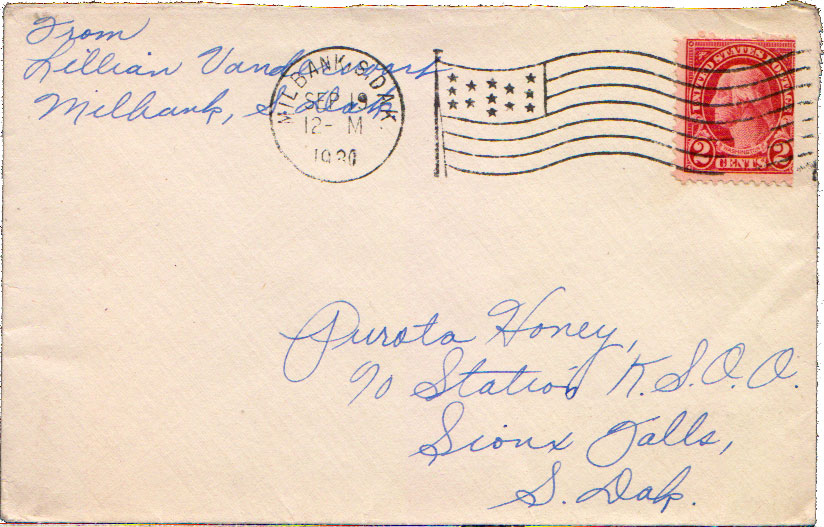 From
Lillian Vand
Milbank, S. Dak
MILBANK, S.DAK.
SEP 19
12- M
1930
UNITED STATES POSTAGE
WASHINGTON
2 CENTS 2
Purota Honey,
℅ Station K.S.O.O.
Sioux Falls,
S. Dak.